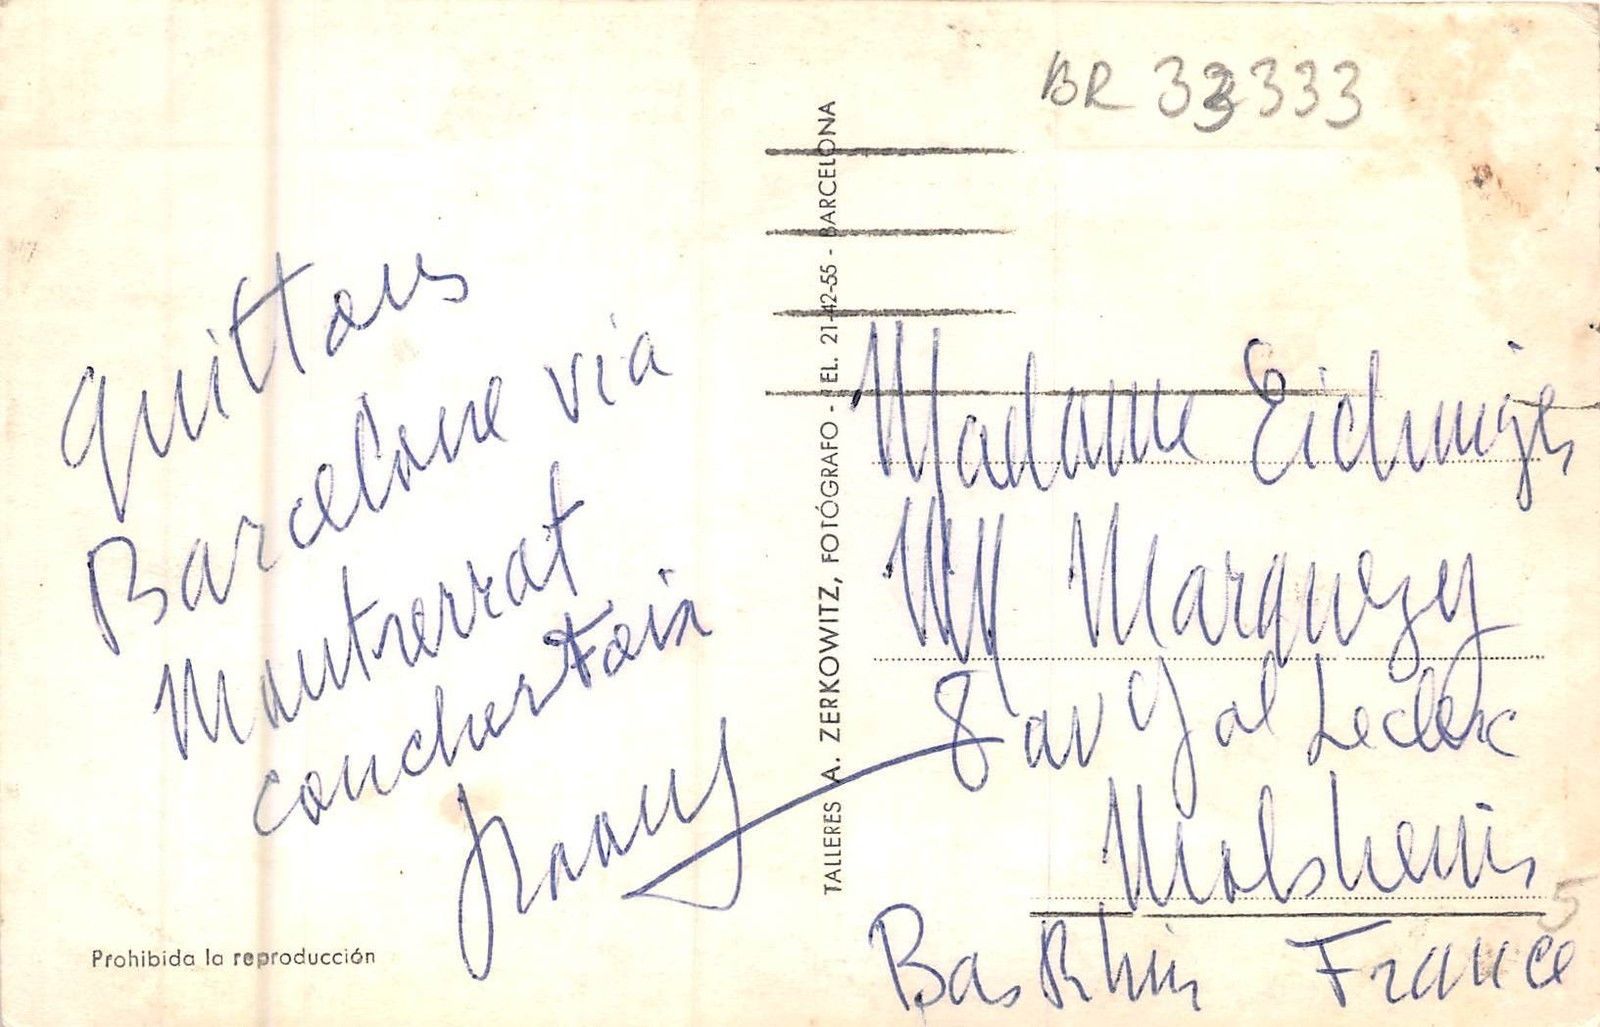 BR 33333
quittons
Barcelone via
Montserrat
coucher Foix
TALLERES A. ZERKOWITZ, FOTÓGRAFO - TEL. 21-42-55 - BARCELONA
Madame Eichinger
Marquezy
8 av Gal Leclerc
Molsheim
Bas Rhin France
5
Prohibida la reproducción